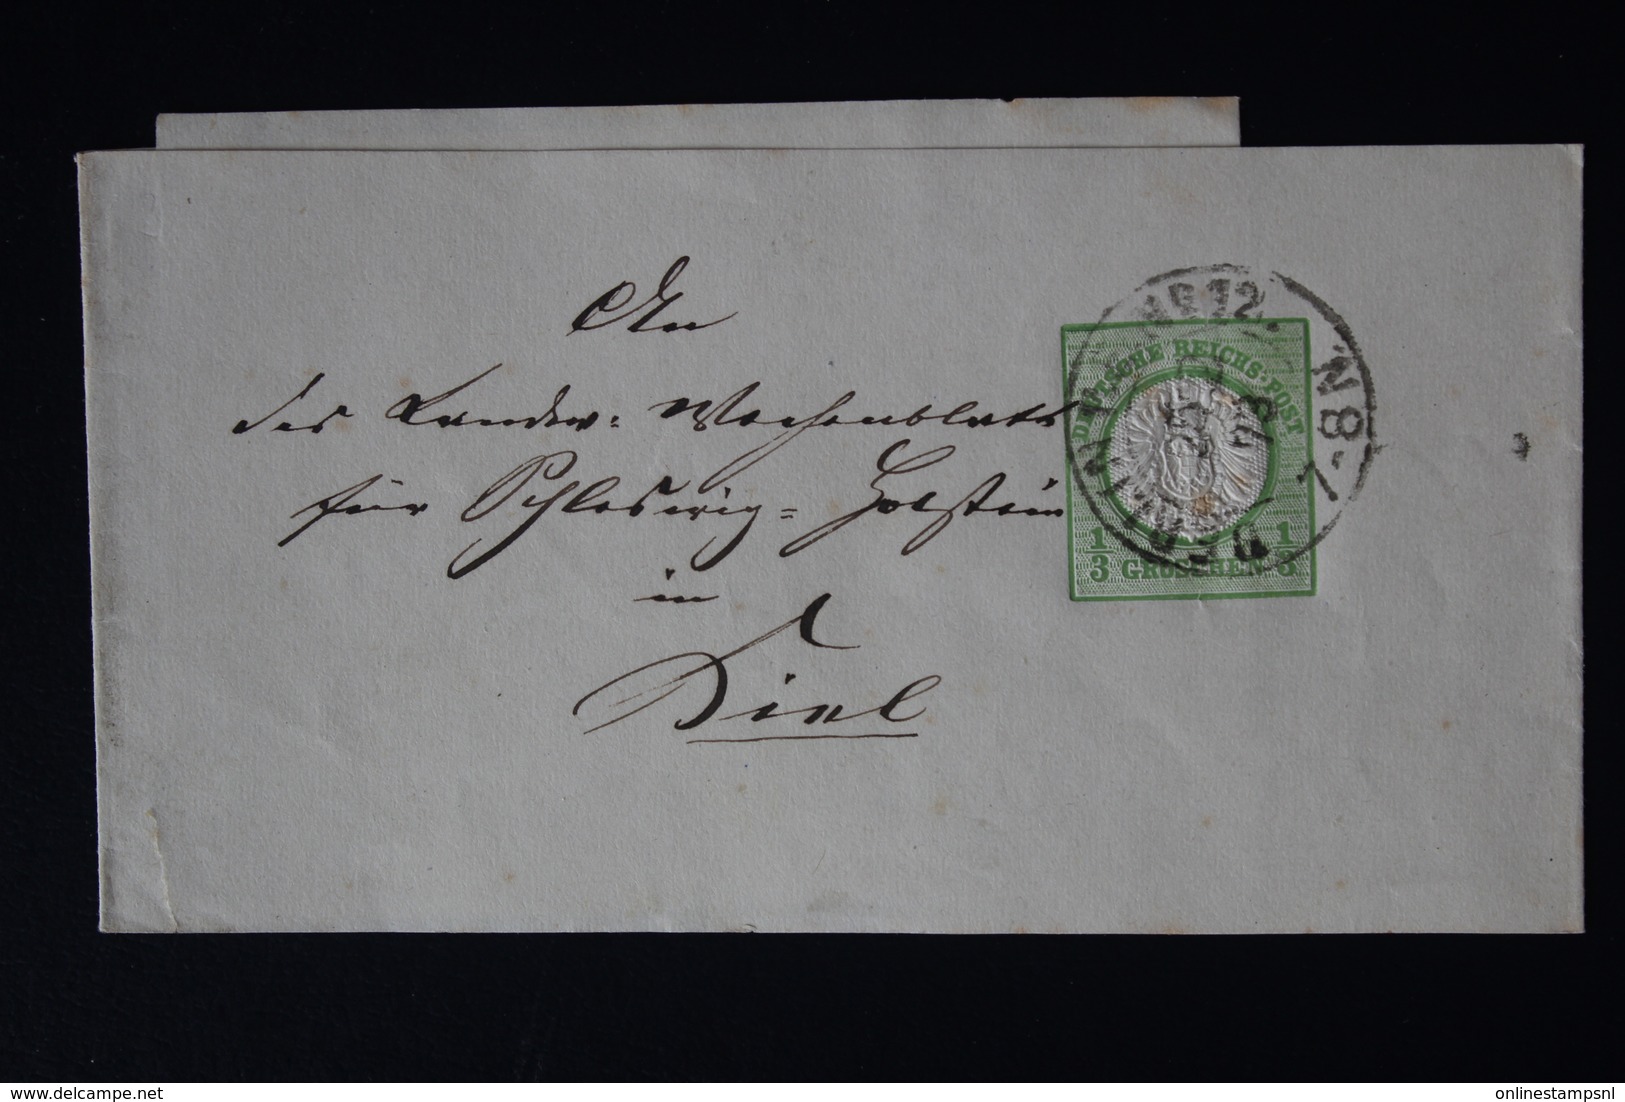 An
das Landw: Wochenblatt
für Schleswig = Holstein
in
Kiel
DEUTSCHE REICHS-POST
1/3 GROSCHEN 1/3
BERLIN
12. N 8-7
onlinestampsnl